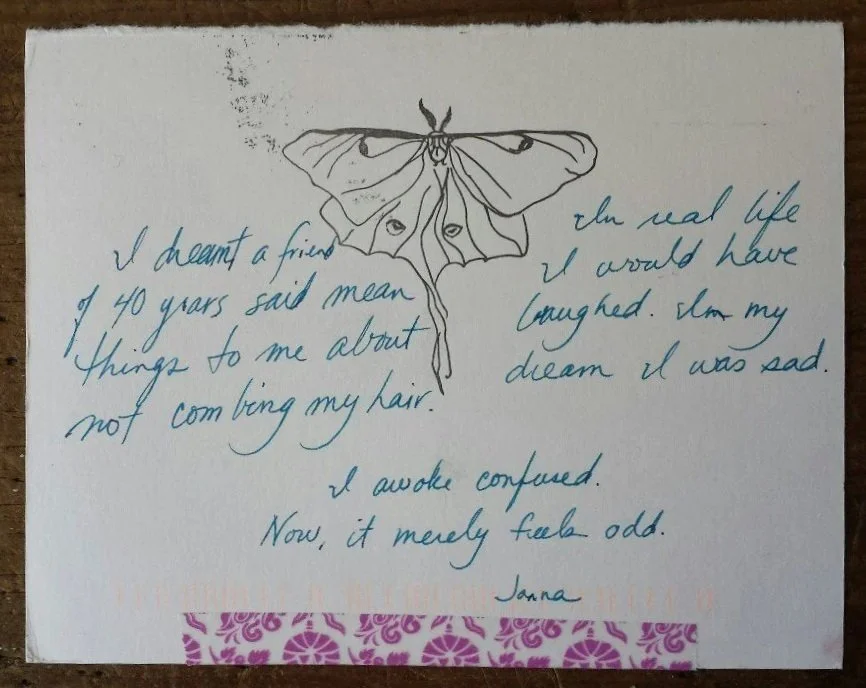 I dreamt a friend
of 40 years said mean
things to me about
not combing my hair.
In real life
I would have
laughed. In my
dream I was sad.
I awoke confused.
Now, it merely feels odd.
Janna